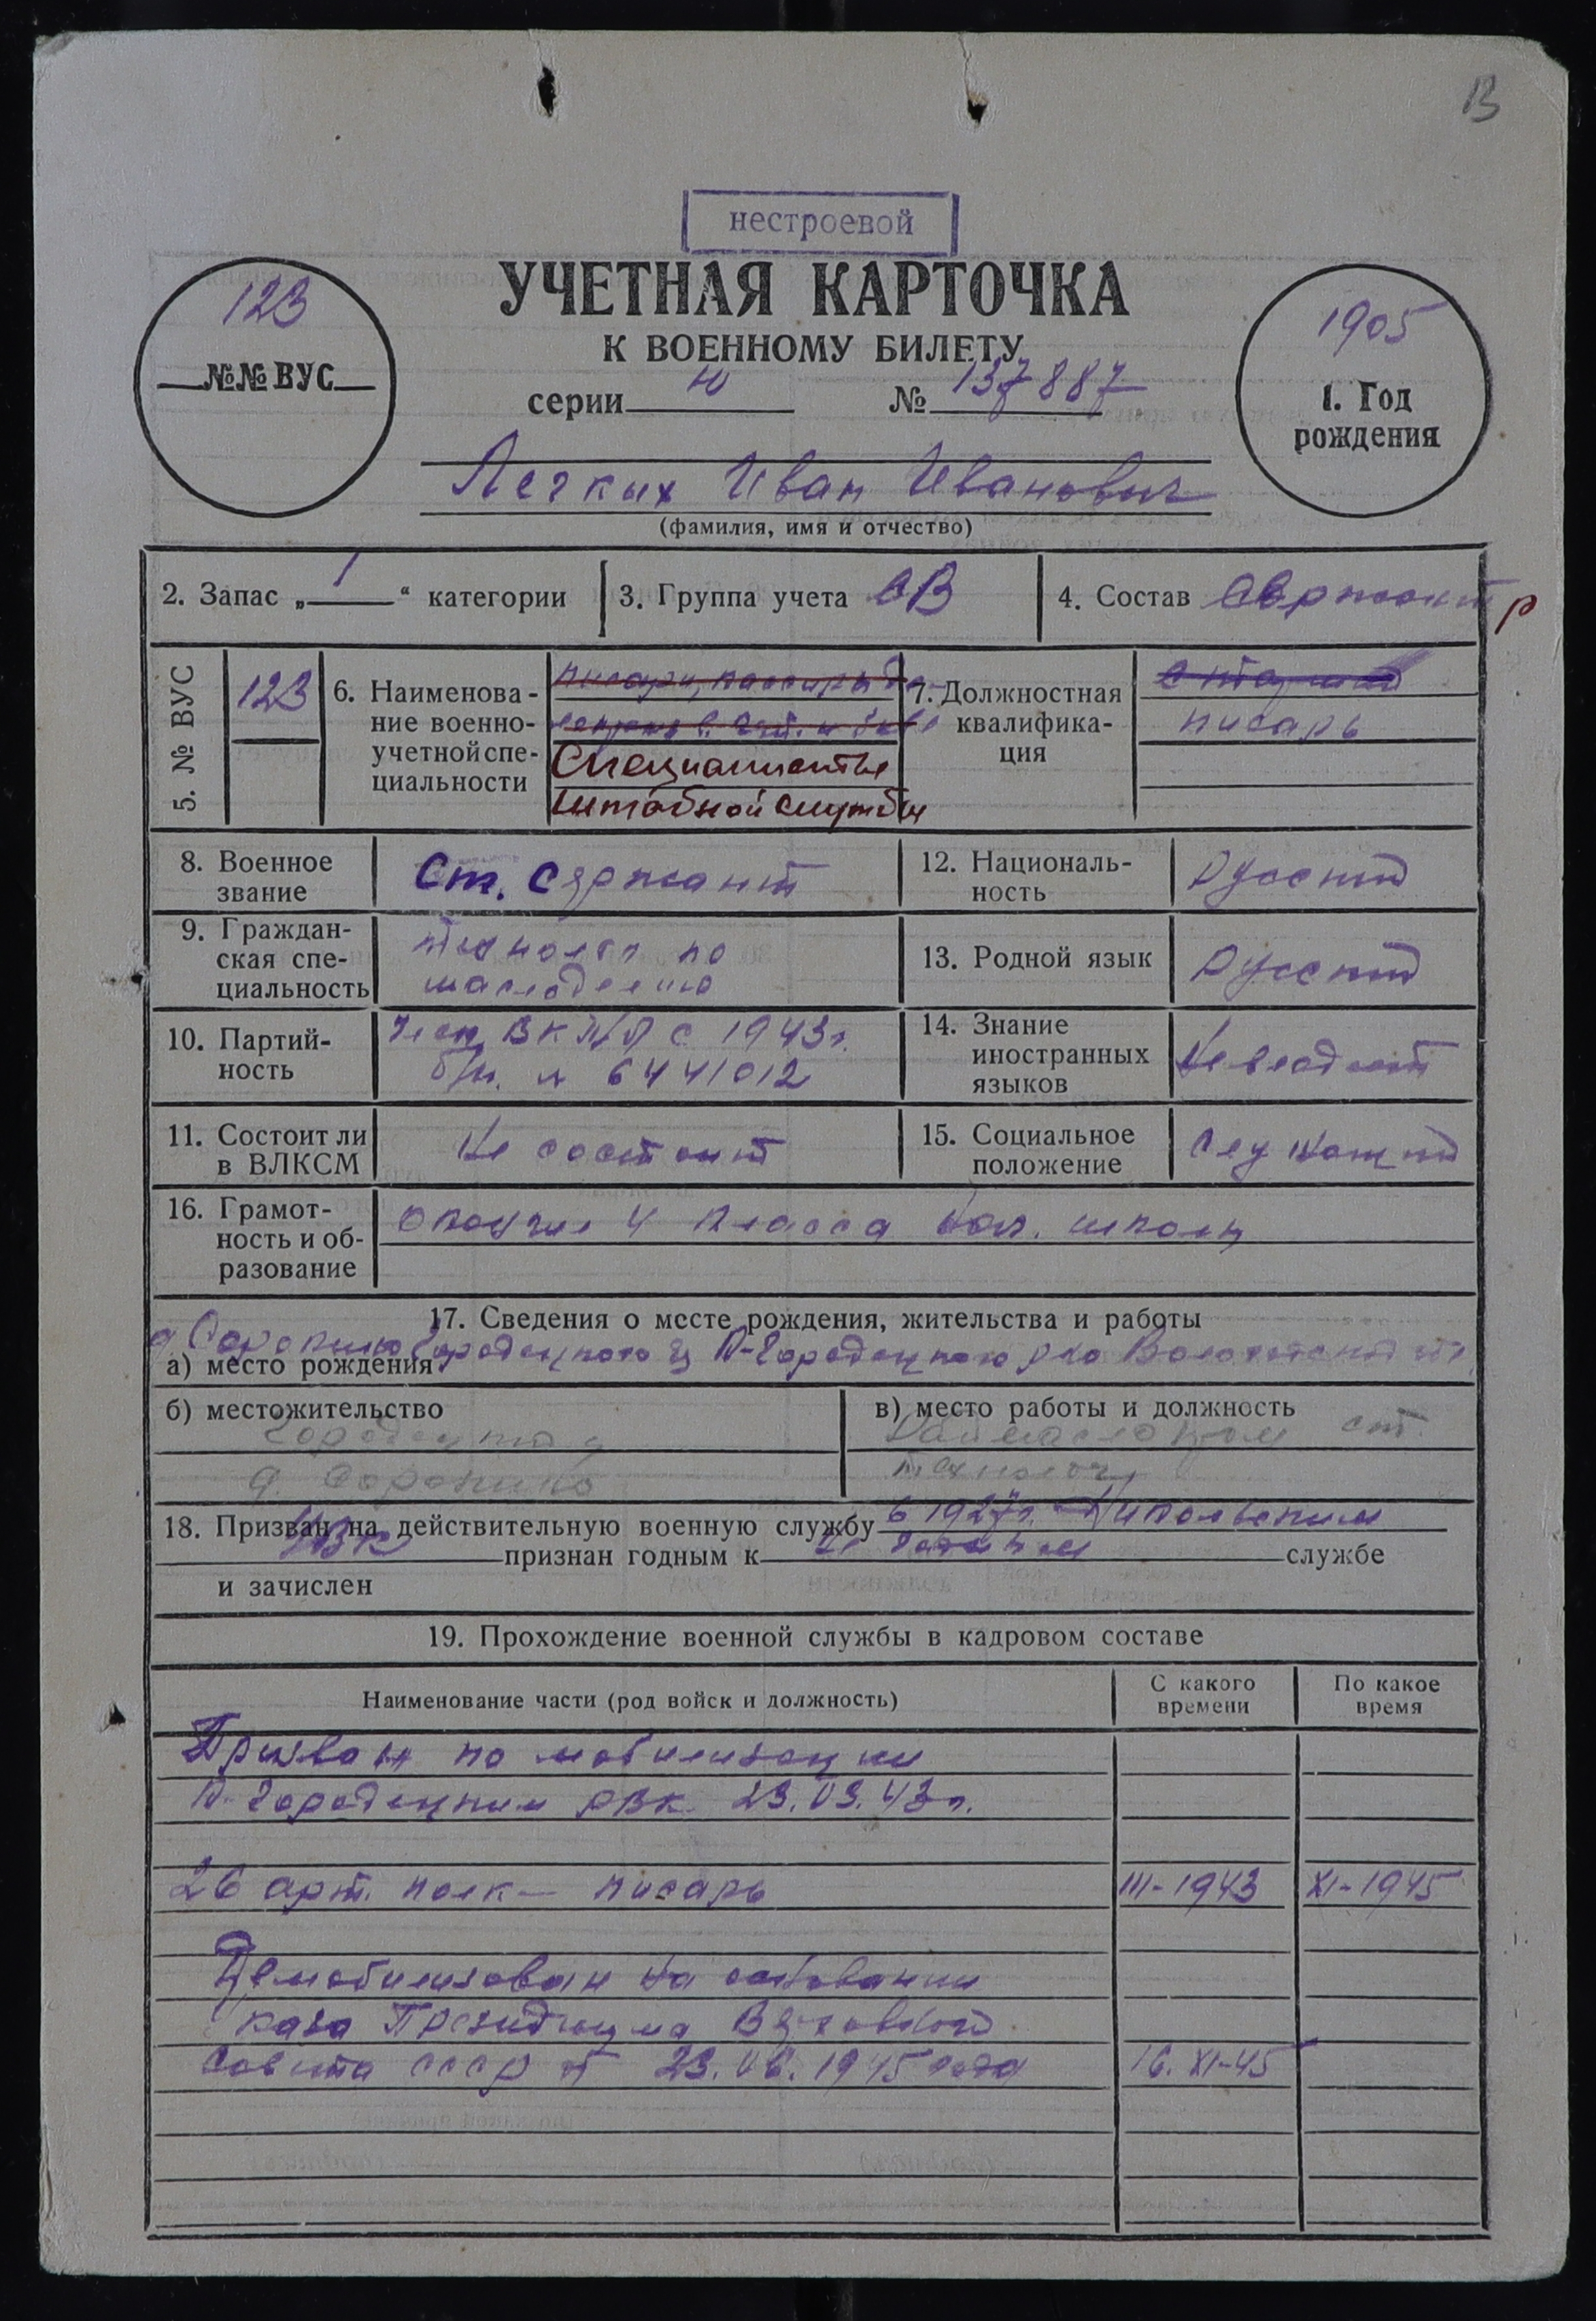 В
нестроевой
УЧЕТНАЯ КАРТОЧКА
К ВОЕННОМУ БИЛЕТУ
серии Ю № 137887
123
№№ ВУС
1905
1. Год
рождения
Легких Иван Иванович
(фамилия, имя и отчество)
2. Запас „ 1 “ категории
3. Группа учета СВ
4. Состав Сержант
р
5. № ВУС
123
6. Наименова-
ние военно-
учетной спе-
циальности
писари,
Специалисты
штабной службы
7. Должностная
квалифика-
ция
старший
писарь
8. Военное
звание
Ст. Сержант
12. Националь-
ность
Русский
9. Граждан-
ская спе-
циальность
технолог по
маслоделию
13. Родной язык
Русский
10. Партий-
ность
Член ВКП/б с 1943г.
б/н. № 6441012
14. Знание
иностранных
языков
Не владеет
11. Состоит ли
в ВЛКСМ
Не состоит
15. Социальное
положение
Служащий
16. Грамот-
ность и об-
разование
Окончил 4 класса школы
17. Сведения о месте рождения, жительства и работы
а) место рождения
д. Сорокино Городецкого К-Городецкого р-на Вологодской
б) местожительство
Городецкий
д. Сорокино
в) место работы и должность
Раймаслопром ст.
технолог
18. Призван на действительную военную службу в 1927г. Никольским
УВК признан годным к службе
и зачислен
19. Прохождение военной службы в кадровом составе
Наименование части (род войск и должность)
С какого
времени
По какое
время
Призван по мобилизации
К-Городецким РВК 23.03.43г.
26 арт. полк – писарь III-1943 XI-1945
Демобилизован на основании
каза Президиума Верховной
Совета СССР от 23.06.1945 года 16.XI-45